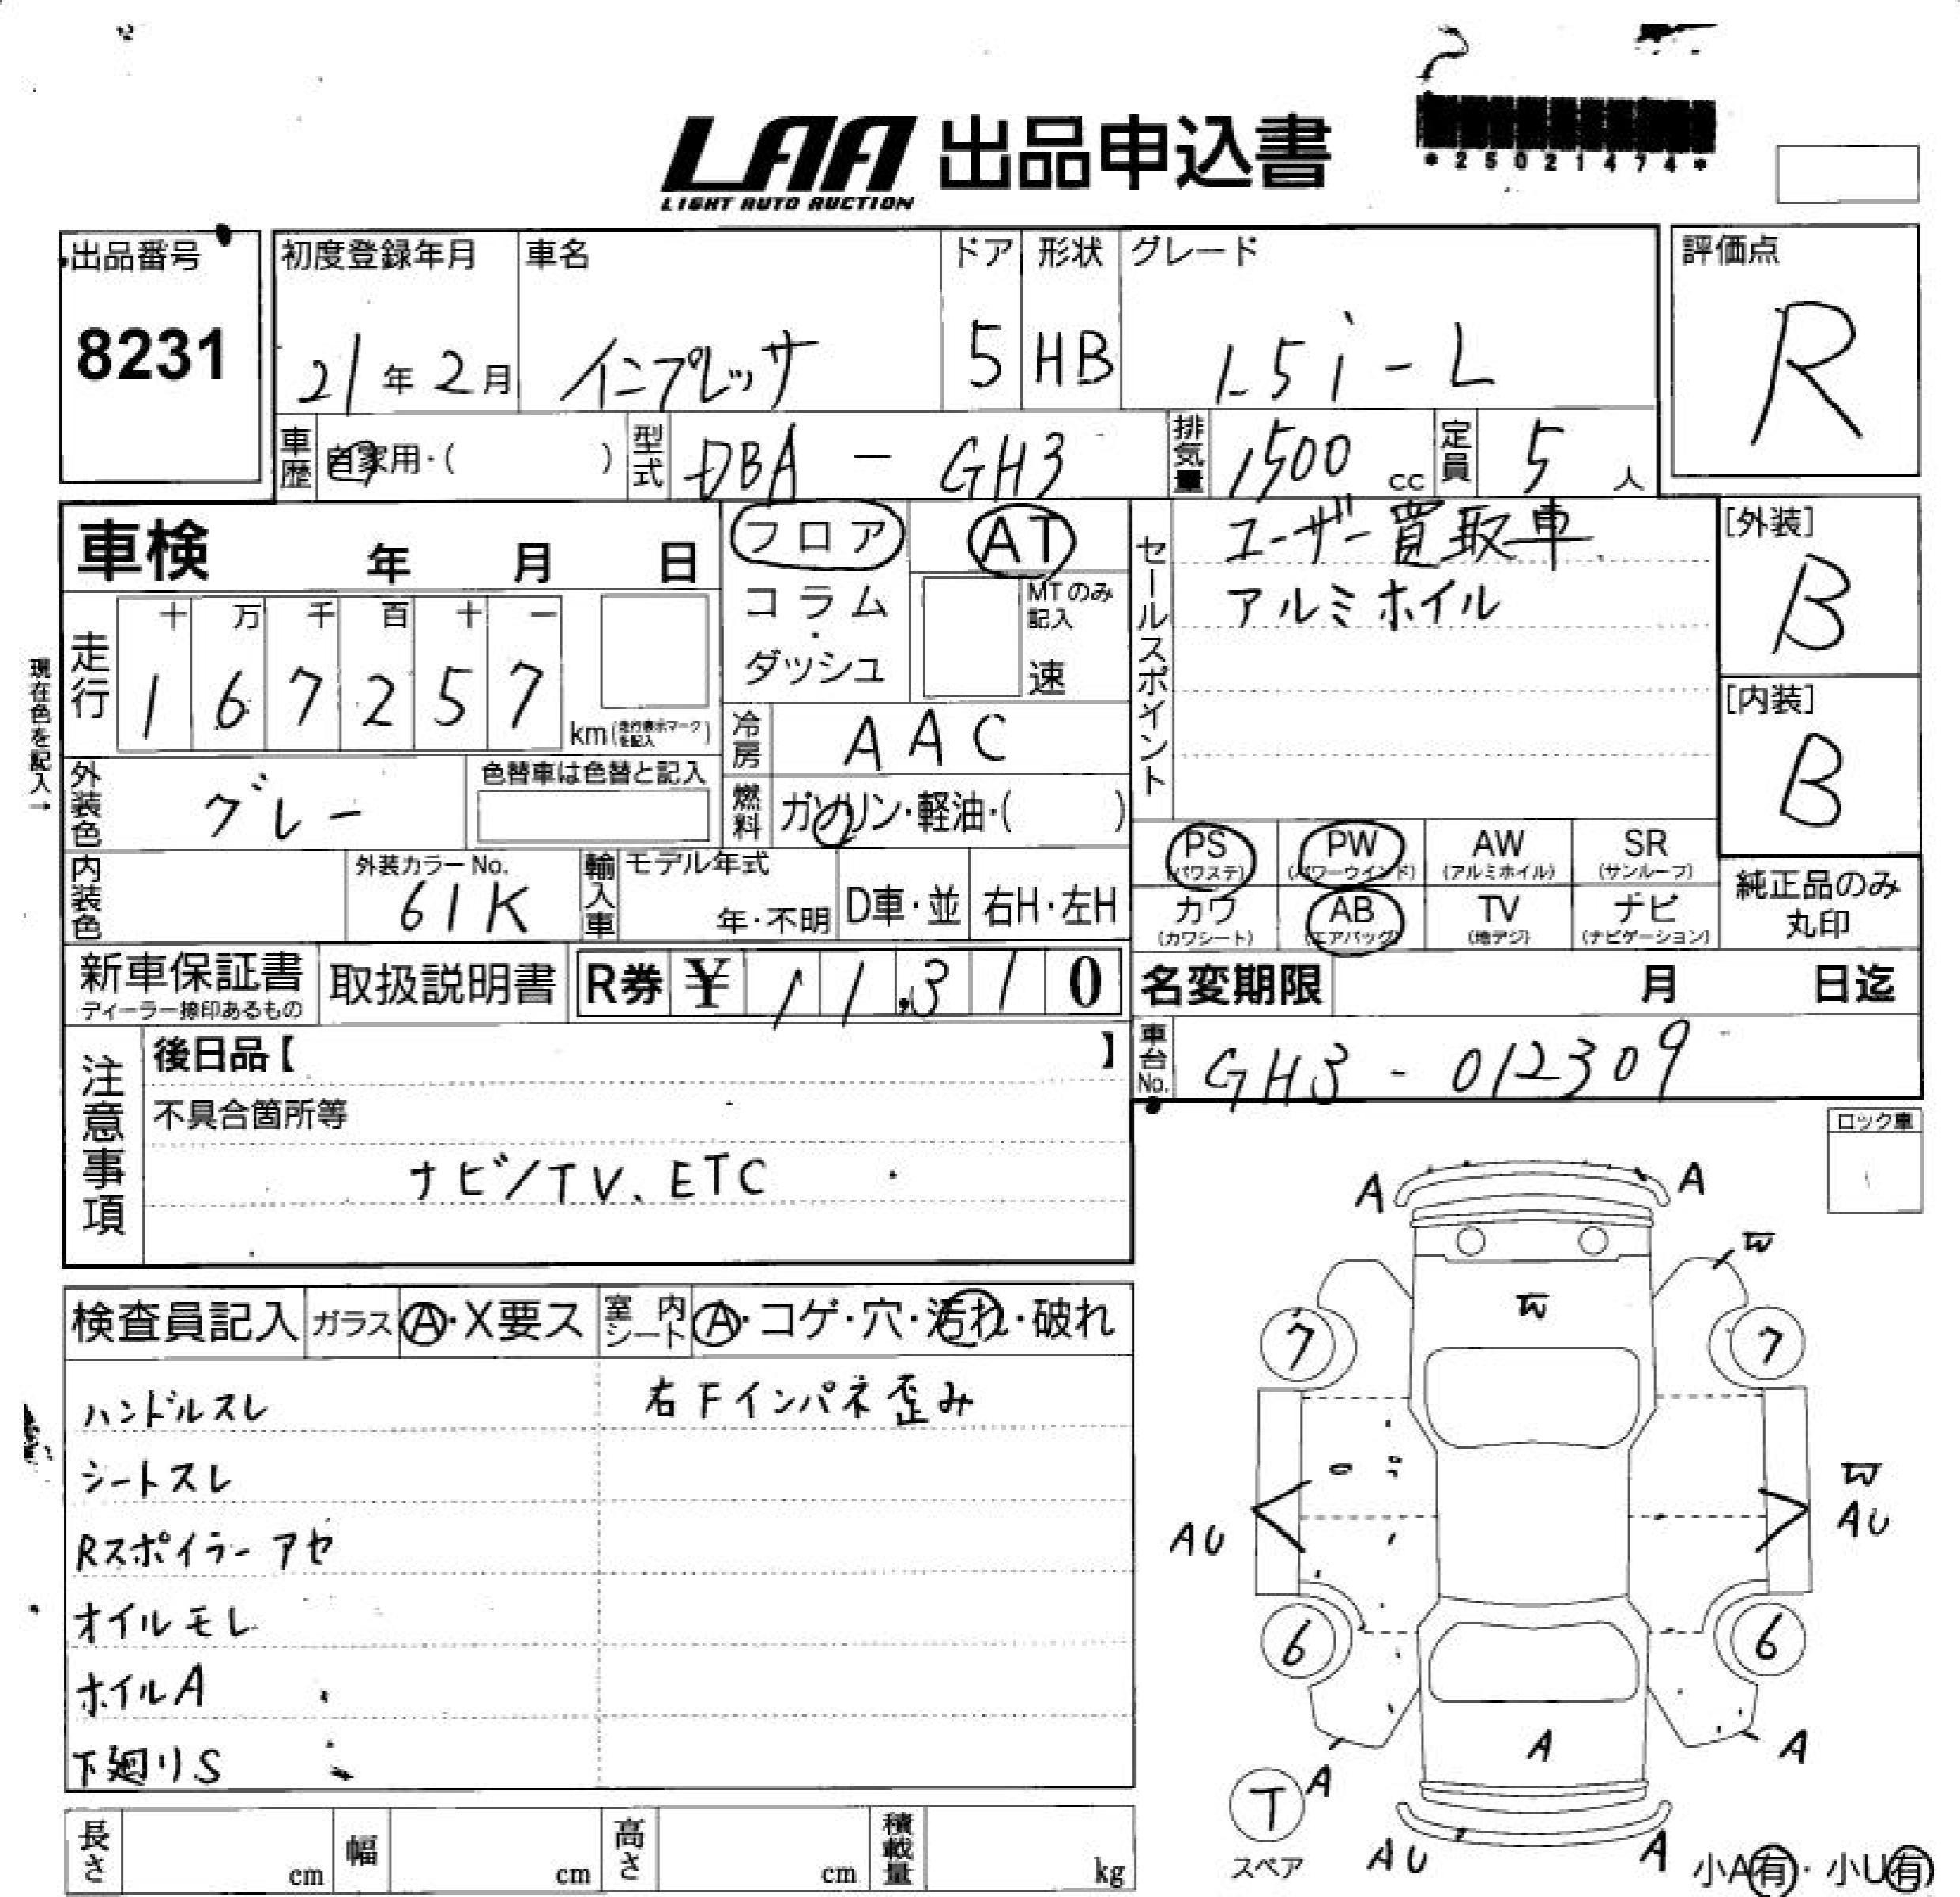 LAA 出品申込書
LIGHT AUTO AUCTION
*25021474*
出品番号
8231
初度登録年月
21年2月
車名
インプレッサ
ドア
5
形状
HB
グレード
1.5i-L
評価点
R
車歴
自家用・( )
型式
DBA - GH3
排気量
1500 cc
定員
5人
車検 年 月 日
フロア
コラム
・
ダッシュ
AT
MTのみ
記入
速
セールスポイント
ユーザー買取車
アルミホイル
[外装]
B
[内装]
B
現在色を記入→
走行
十 万 千 百 十 一
1 6 7 2 5 7
km(走行表示マークを記入)
冷房
AAC
外装色
グレー
色替車は色替と記入
燃料
ガソリン・軽油・( )
内装色
外装カラーNo.
61K
輸入車
モデル年式
年・不明
D車・並
右H・左H
PS
(パワステ)
PW
(パワーウインド)
AW
(アルミホイル)
SR
(サンルーフ)
カワ
(カワシート)
AB
(エアバッグ)
TV
(地デジ)
ナビ
(ナビゲーション)
純正品のみ
丸印
新車保証書
ディーラー捺印あるもの
取扱説明書
R券 ¥ 11,310
名変期限 月 日迄
車台No.
GH3-012309
注意事項
後日品【 】
不具合箇所等
ナビ/TV、ETC
ロック車
検査員記入
ガラス
A・X要ス
室内
シート
A・コゲ・穴・汚れ・破れ
ハンドルスレ
シートスレ
Rスポイラーアセ
オイルモレ
ホイルA
下廻りS
右Fインパネ歪み
A A
W
W
7 7
W
AU AU
6 6
A
A
A
T
スペア
AU
A
小A有・小U有
長さ cm
幅 cm
高さ cm
積載量 kg